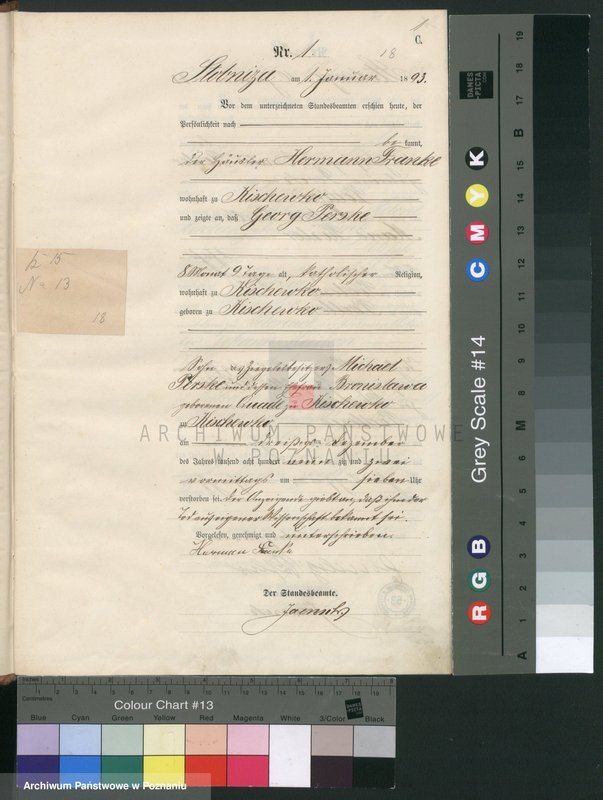 1
C.
Nr. 1.
18
Stobnica am 1. Januar 1893.
Vor dem unterzeichneten Standesbeamten erschien heute, der
Persönlichkeit nach
be kannt,
der Häusler Hermann Franke
wohnhaft zu Kischewko
und zeigte an, daß Georg Perske
8 Monat 9 Tage alt, katholischer Religion,
wohnhaft zu Kischewko
geboren zu Kischewko
Sohn des Ziegeleibesitzers Michael
Perske und dessen Ehefrau Bronislawa
geborenen zu Kischewko
zu Kischewko
am dreißigsten Dezember
des Jahres tausend acht hundert neun zig und zwei
vormittags um sieben Uhr
verstorben sei. Der Anzeigende giebt an, daß ihm der
Tod aus eigener Wissenschaft bekannt sei.
Vorgelesen, genehmigt und unterschrieben.
Herman Franke
Der Standesbeamte.
15
No 13
18
ARCHIWUM PAŃSTWOWE
W POZNANIU
DANES
PICTA
.COM
Grey Scale #14
C M Y K
R G B
A 1 2 3 4 5 6 M 8 9 10 11 12 13 14 15 B 17 18 19
Centimetres
Colour Chart #13
Blue Cyan Green Yellow Red Magenta White 3/Color Black
Archiwum Państwowe w Poznaniu